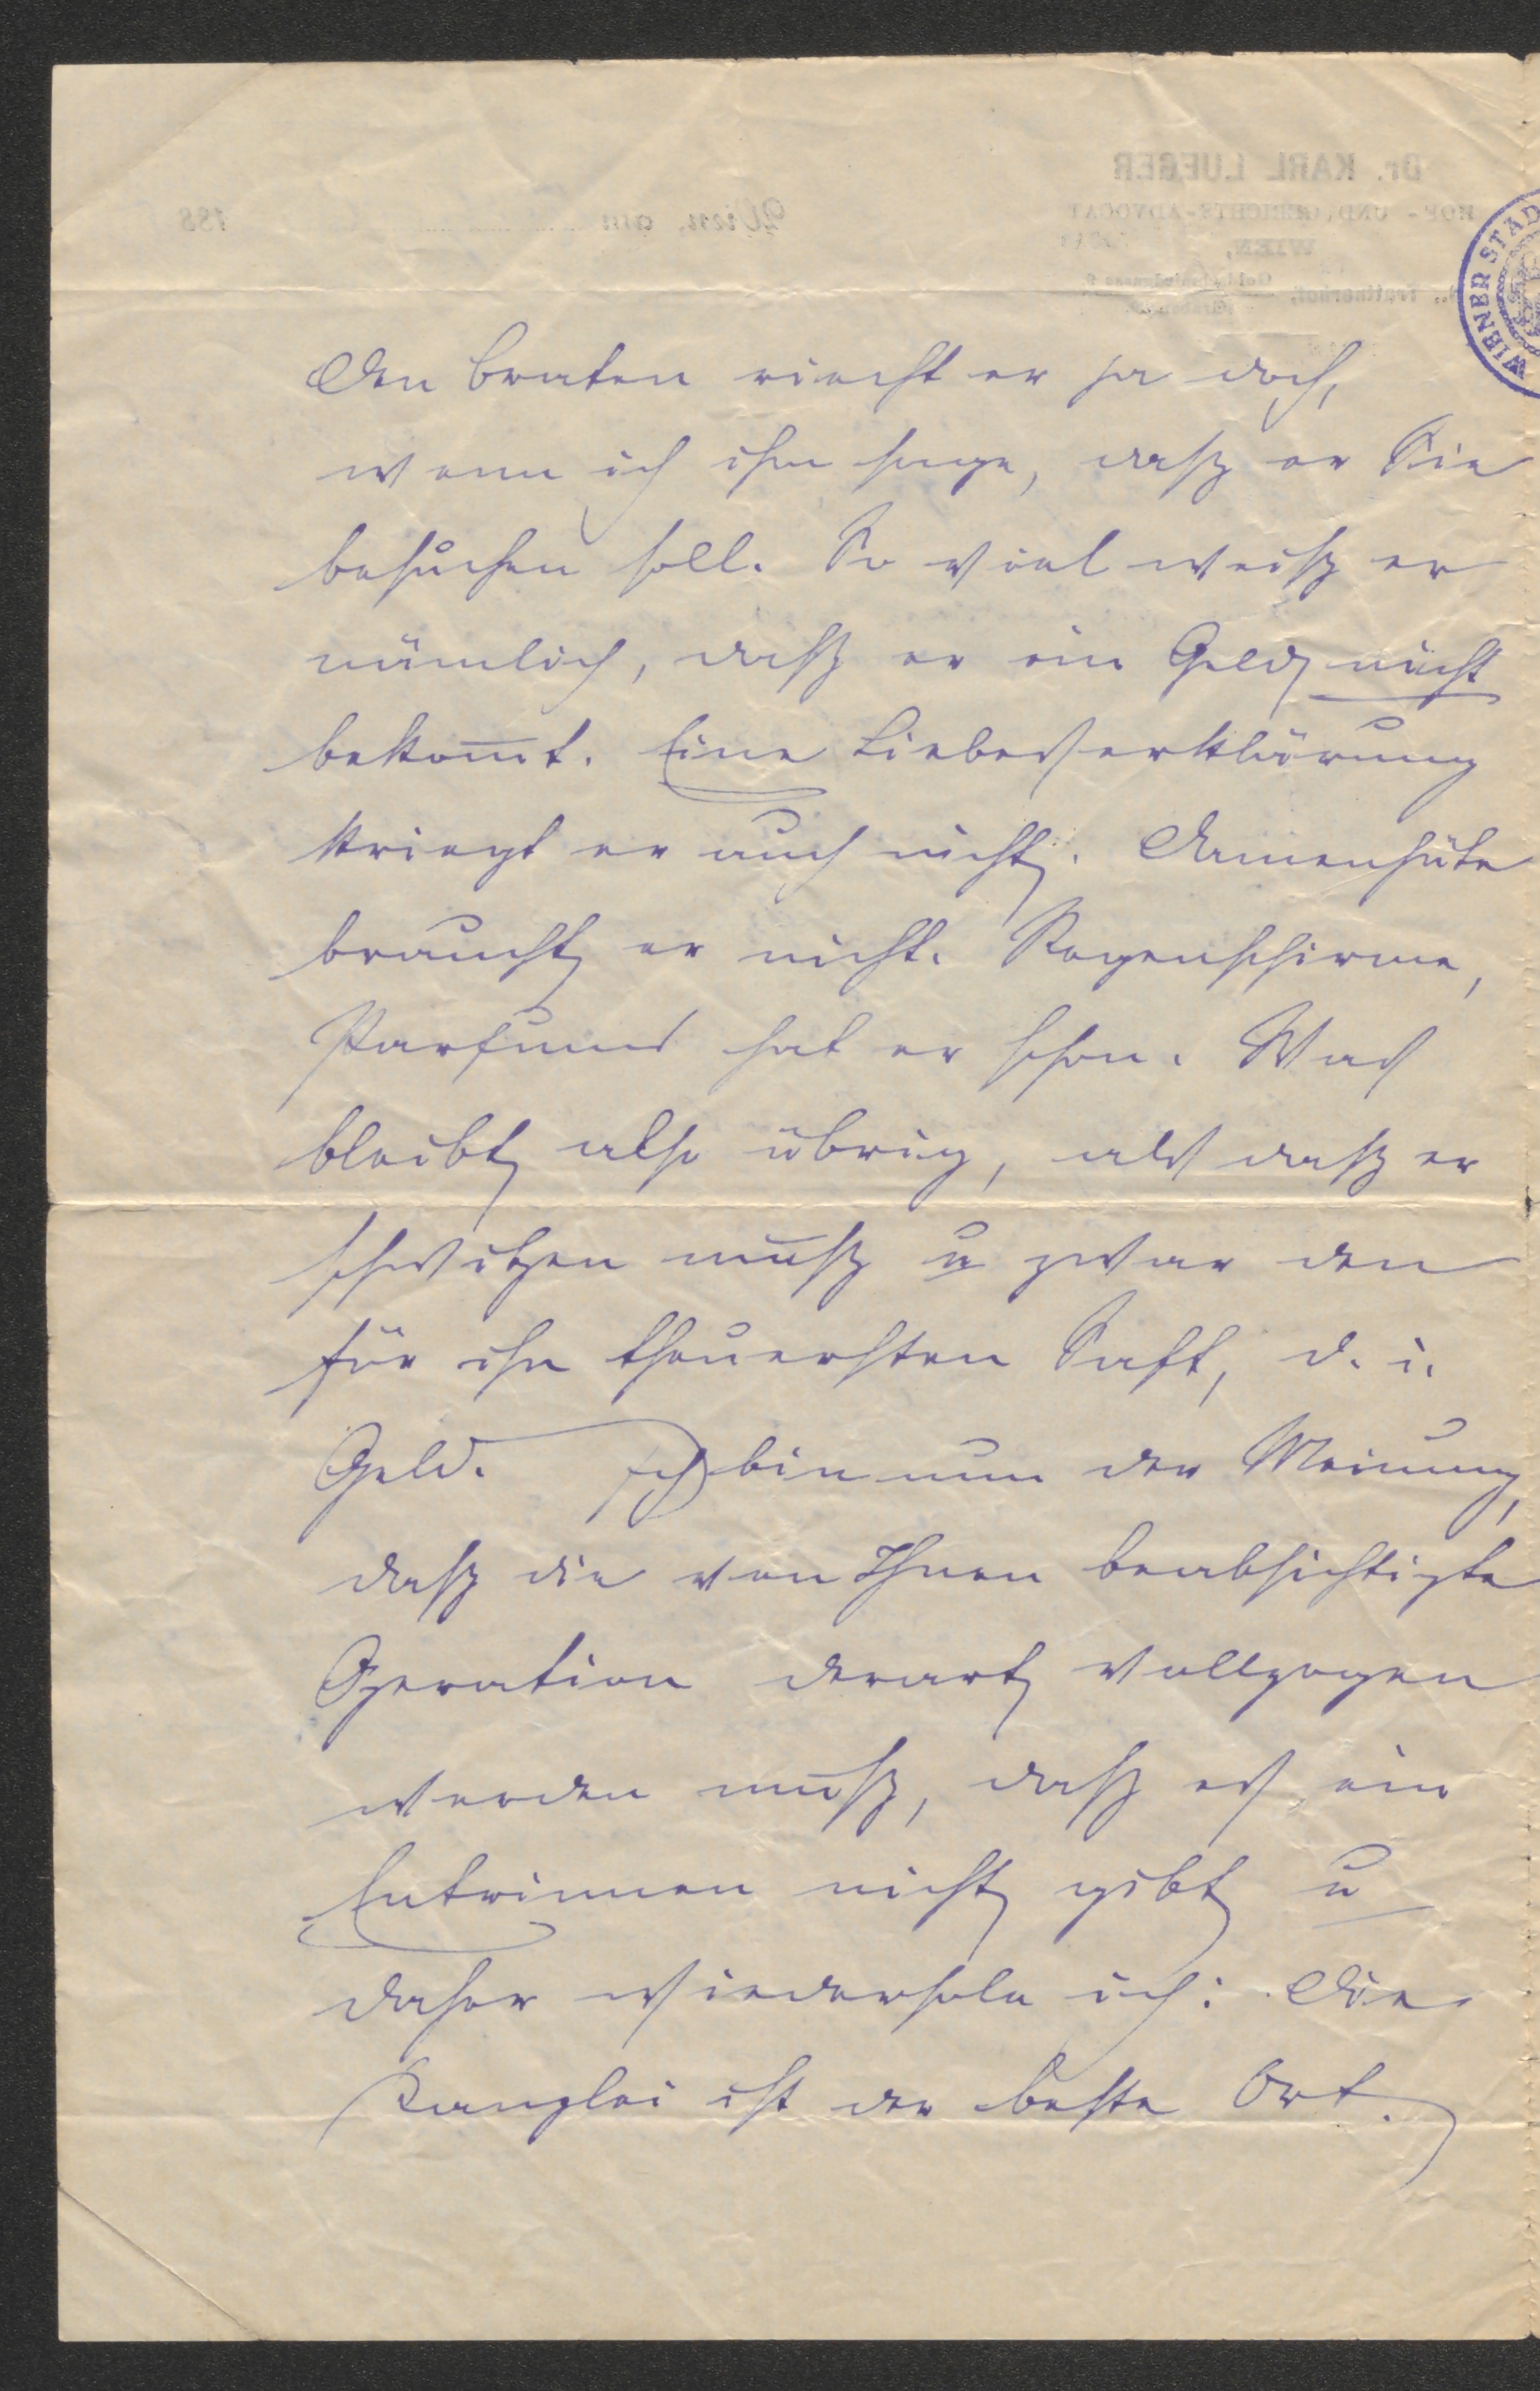 Den Braten riecht er ja doch,
wenn ich ihm sage, daß er Sie
besuchen soll. So viel weiß er
nämlich, daß er ein Geld nicht
bekom̅t. Eine Liebeserklärung
kriegt er auch nicht. Damenhüte
braucht er nicht. Regenschirme,
Parfums hat er schon. Was
bleibt also übrig, als daß er
schwitzen muß u zwar den
für ihn theuersten Saft, d. i.
Geld. Ich bin nun der Meinung,
daß die von Ihnen beabsichtigte
Operation derart vollzogen
werden muß, daß es ein
Entrinnen nicht gibt u
daher wiederhole ich: Die
Kanzlei ist der beste Ort.
Dr. KARL LUEGER
HOF- UND GERICHTS-ADVOCAT
WIEN,
Wien, am 188
WIENER STAD